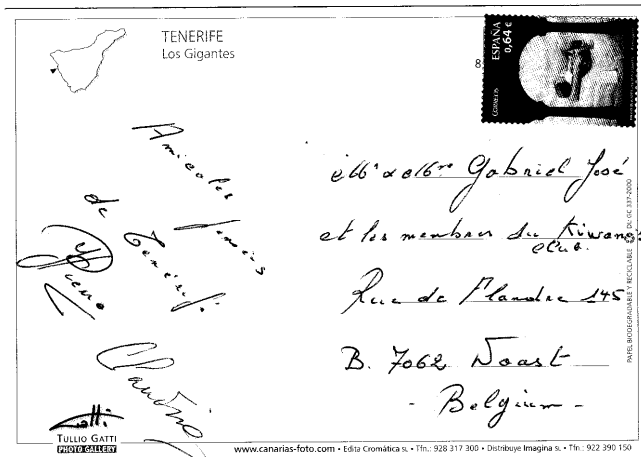 TENERIFE
Los Gigantes
8
ESPAÑA
0,64 €
CORREOS
Amicales
pensées
de Ténérife
Claudine
Gabriel José
et les membres du Kiwanis
club.
Rue de Flandre 145
B. 7062 Naast
- Belgium -
PAPEL BIODEGRADABLE Y RECICLABLE DL: GC 337-2000
Gatti
TULLIO GATTI
PHOTO GALLERY
www.canarias-foto.com • Edita Cromática SL • Tfn.: 928 317 300 • Distribuye Imagina SL • Tfn.: 922 390 150